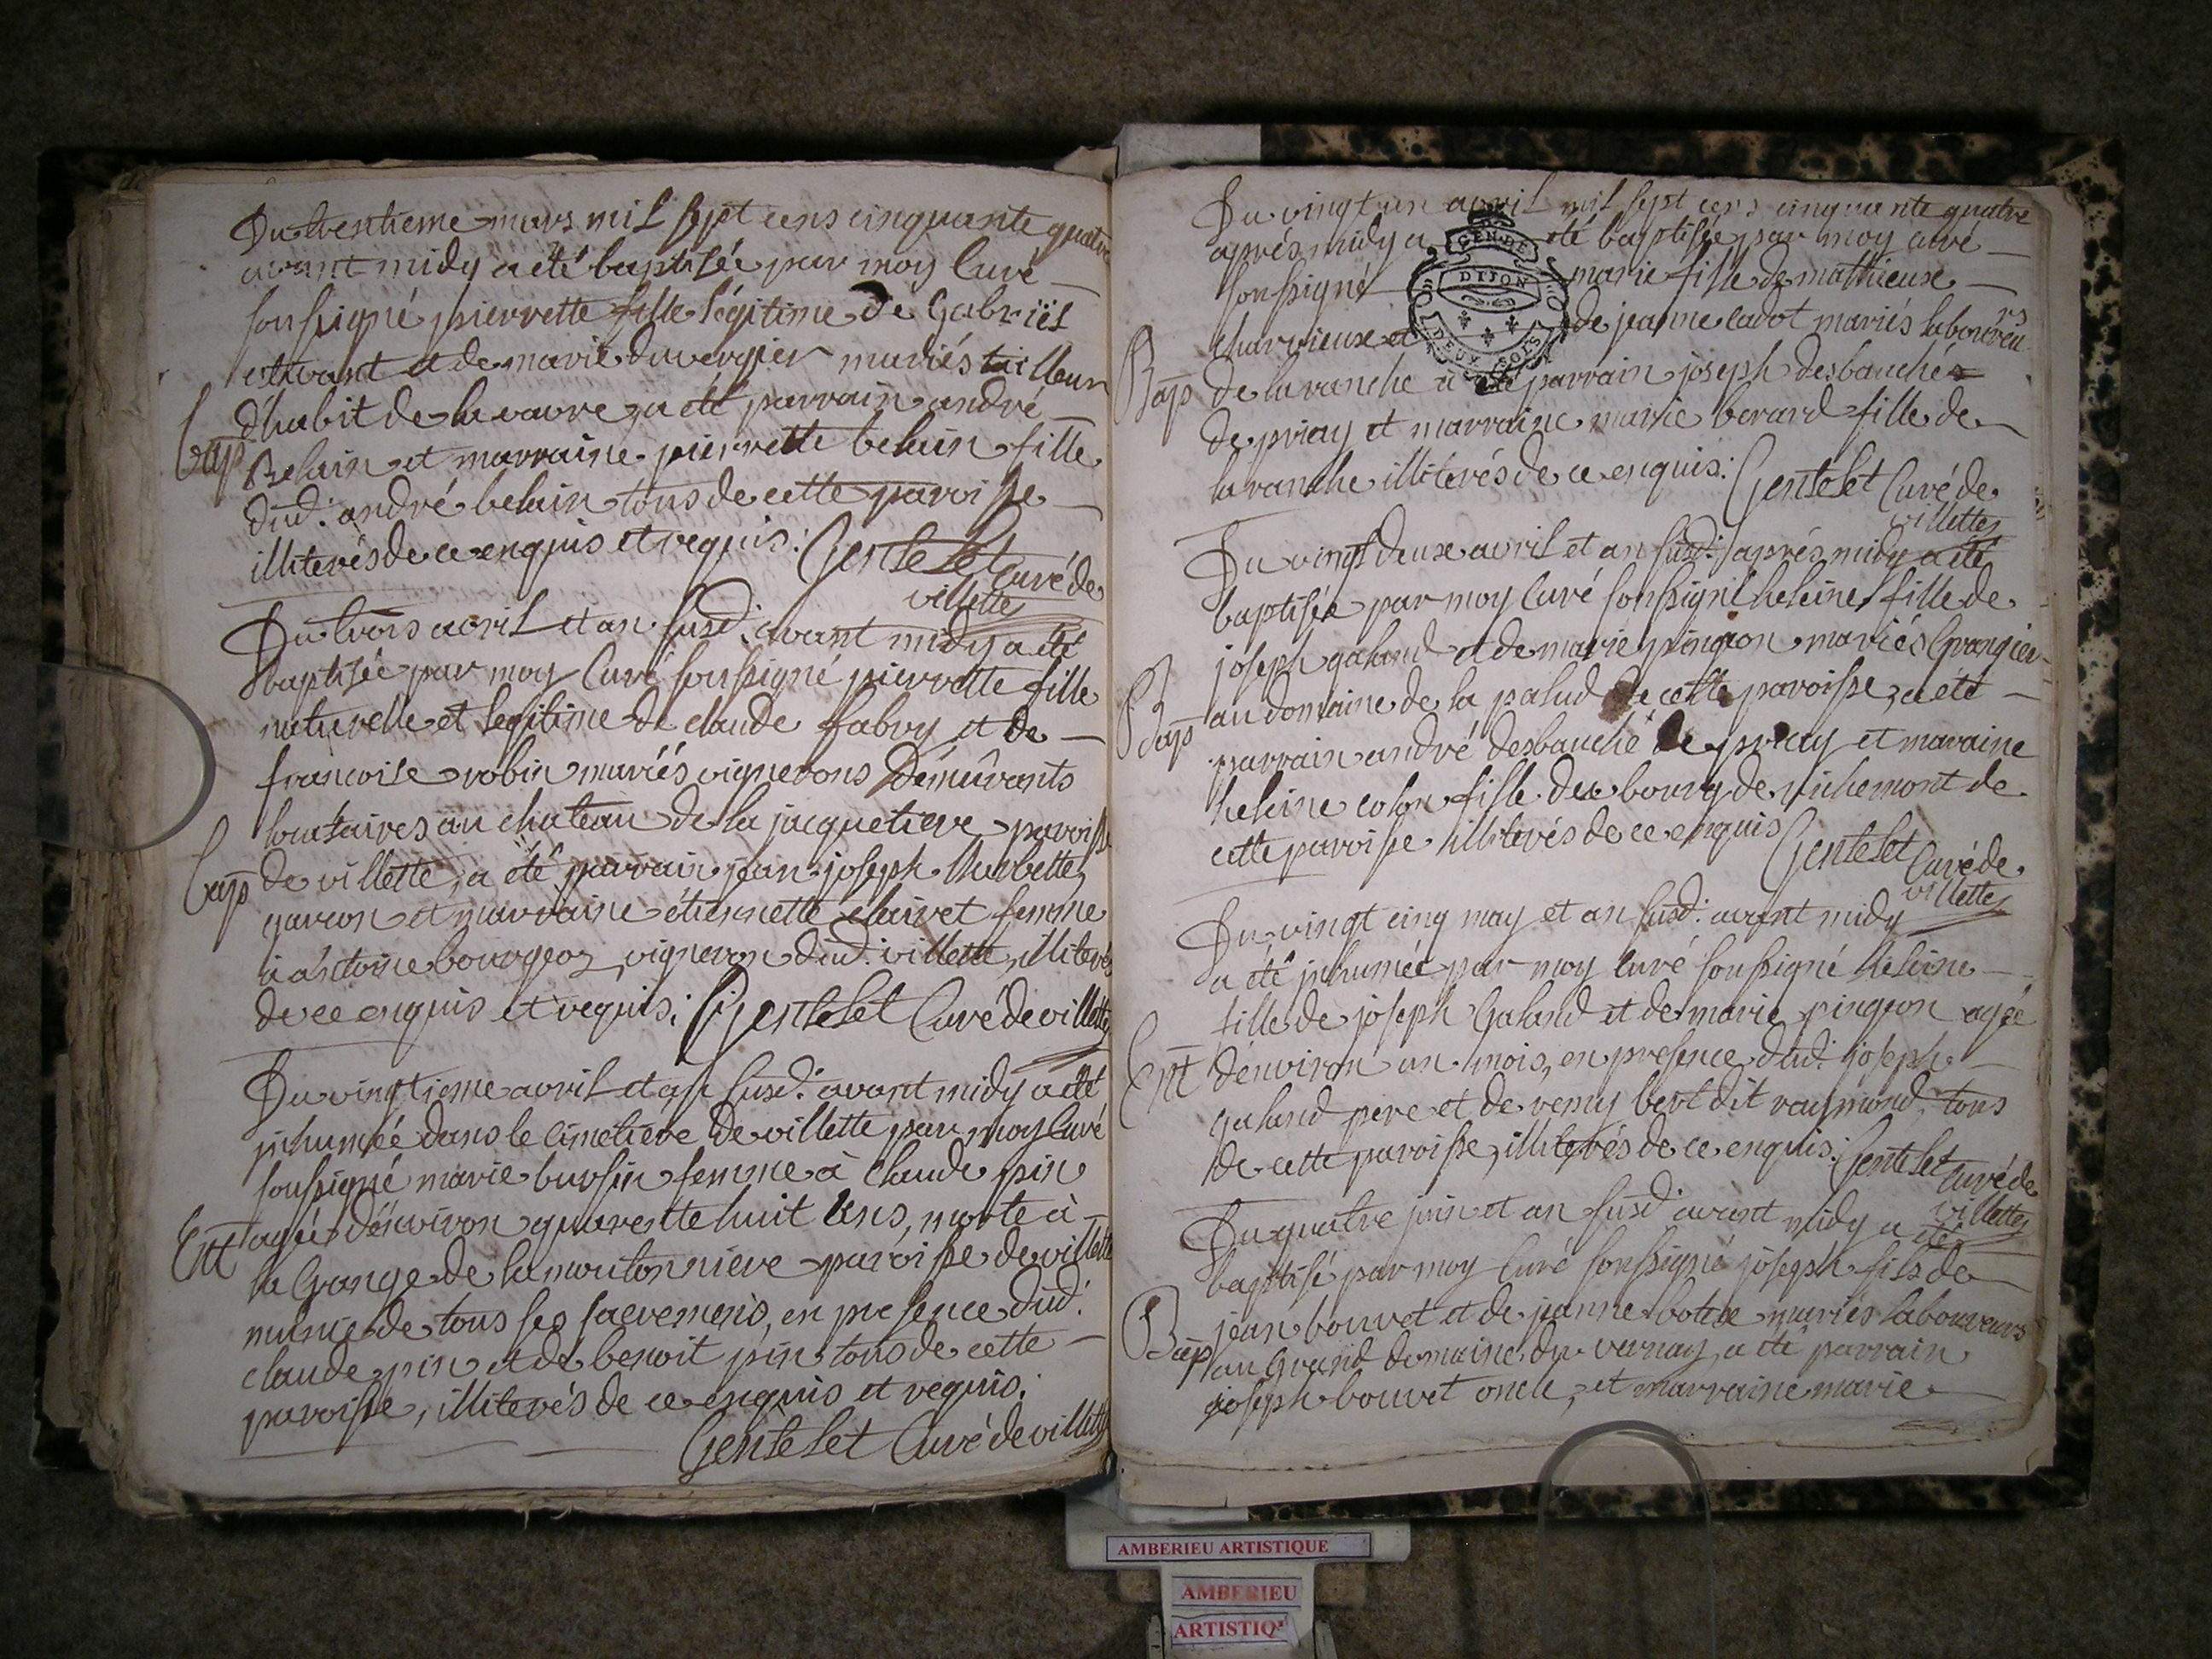 Du trentieme mars mil sept cens cinquante quatre
avant midy a été baptisée par moy Curé
soussigné pierrette fille légitime de Gabriël
et de marie duvergier mariés tailleur
d'habit de la vavre, a été parrain andré
Bap Belain et marraine pierrette belain fille
dud: andré belain tous de cette paroisse
illiterés de ce enquis et requis: Gentelet Curé de
villette
Du trois avril et an susd: avant midy a été
baptisée par moy Curé soussigné pierrette fille
naturelle et legitime de claude fabry et de
francoise robin mariés vignerons Demeurants
locataires au chateau de la jacquetiere paroisse
Bap de villette, a été parrain jean joseph
garcon et marraine étiennette clairet femme
à antoine bourgeoz vigneron dud: villette, illiterés
de ce enquis et requis: Gentelet Curé de villette
Du vingtieme avril et an susd: avant midy a été
inhumée dans le cimetiere de villette par moy Curé
soussigné marie bursin femme à Claude pin
Ent agée d'environ quarentte huit ans, morte à
la Grange de la moutonniere paroisse de villette
munie de tous ses sacremens, en presence dud:
claude pin et de benoit pin tous de cette
paroisse, illiterés de ce enquis et requis:
Gentelet Curé de villette
Du vingt un avril mil sept cens cinquante quatre
aprés midy a été baptisée par moy curé
soussigné marie fille de mathieux
charvieux et de jeanne cadot mariés laboureurs
Bap de la ranche a été parrain joseph desbauché
de priay et marraine marie berard fille de
la ranche illiterés de ce enquis: Gentelet Curé de
villette
GEN. DE
DIJON
DEUX SOLS
Du vingt deux avril et an susd: aprés midy a été
baptisée par moy Curé soussigné heleine fille de
joseph galand et de marie pingeon mariés Grangier
Bap au domaine de la palud de cette paroisse, a été
parrain andré desbauché de priay et maraine
heleine colon fille du bourg de richemont de
cette paroisse illiterés de ce enquis Gentelet Curé de
villette
Du vingt cinq may et an susd: avant midy
a été inhumée par moy Curé soussigné heleine
fille de joseph Galand et de marie pingeon agée
Ent d'environ un mois, en presence dud: joseph
galand pere et de remy bert dit raymond, tous
de cette paroisse, illiterés de ce enquis: Gentelet Curé de
villette
Du quatre juin et an susd: avant midy a été
baptisé par moy Curé soussigné joseph fils de
jean bouvet et de jeanne mariés laboureurs
Bap au Grand domaine du vernay, a été parrain
joseph bouvet oncle, et marraine marie
AMBERIEU ARTISTIQUE
AMBERIEU
ARTISTIQ